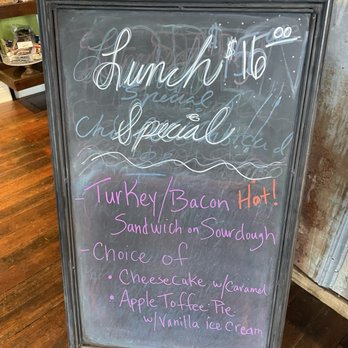 Lunch $16.00
Special
- Turkey/Bacon Hot!
Sandwich on Sourdough
- Choice of
• Cheesecake w/Caramel
• Apple Toffee Pie
w/Vanilla ice Cream